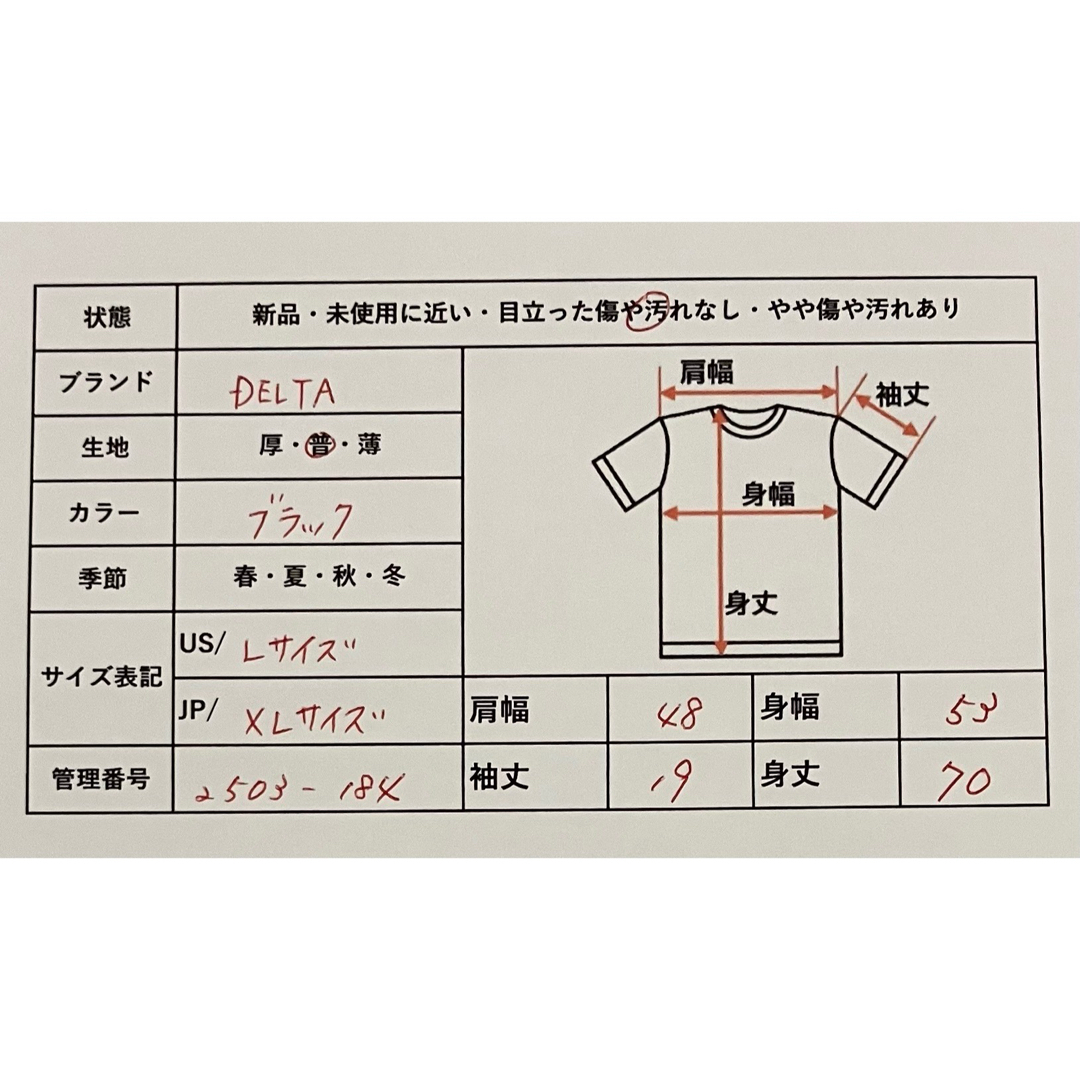 状態 新品・未使用に近い・目立った傷や汚れなし・やや傷や汚れあり
ブランド DELTA
生地 厚・普・薄
カラー ブラック
季節 春・夏・秋・冬
サイズ表記 US/ Lサイズ
JP/ XLサイズ
管理番号 2503-184
肩幅
袖丈
身幅
身丈
肩幅 48 身幅 53
袖丈 19 身丈 70